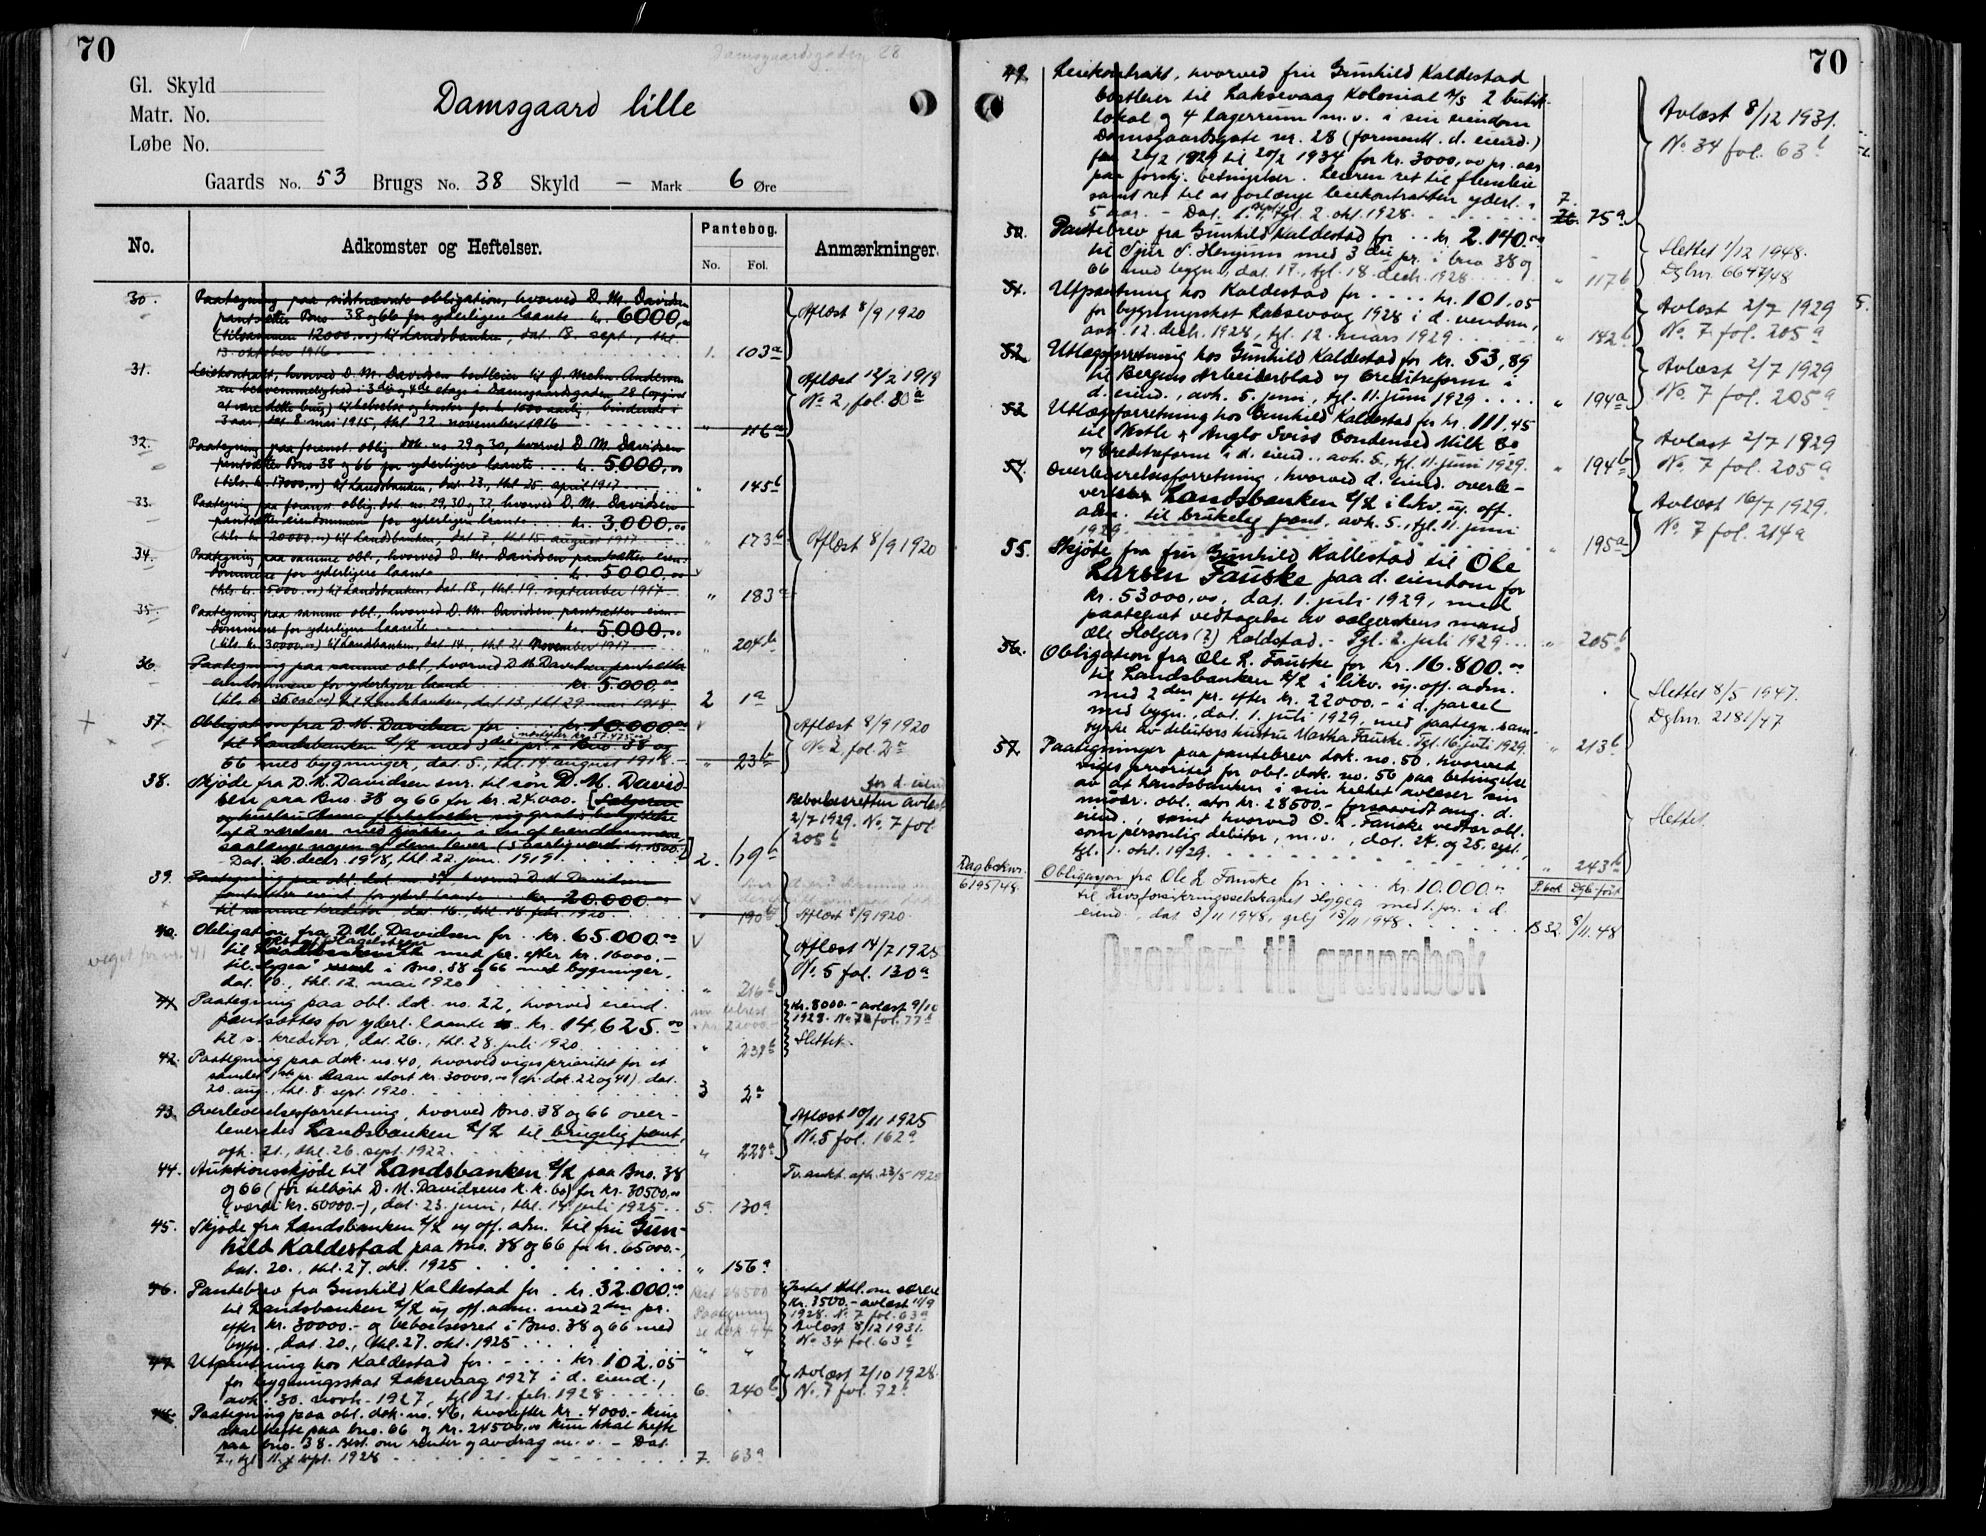 70
Damsgaardsgaden 28
Gl. Skyld
Matr. No.
Løbe No.
Damsgaard lille
Gaards No. 53 Brugs No. 38 Skyld — Mark 6 Øre
No. Adkomster og Heftelser. Pantebog. Anmærkninger.
No. Fol.
30. Paategning paa sidstnævnte obligation, hvorved D. M. Davidsen
pantsætter Bno. 38 og 66 for yderligere laante kr. 6000,00
(tilsammen 12000,00) til Landsbanken, dat. 18. sept., thl.
13. oktober 1916 1. 103a
Aflæst 8/9 1920
31. Leiekontrakt, hvorved D. M. Davidsen bortleier til J. Mechn. Andersen
en bekvemmelighed i 3die og 4de etage i Damsgaardsgaden 28 (opgivet
at være dette brug) til beboelse og kontor for kr. 1000 aarlig, bindende i
3 aar, dat. 8. mai 1915, thl. 22. november 1916 " 116a
Aflæst 12/2 1919
No 2, fol. 80a
32. Paategning paa foranst. oblig. dok. no. 29 og 30, hvorved D. M. Davidsen
pantsætter Bno. 38 og 66 for yderligere laante ... kr. 5000,00
(tils. kr. 17000,00) til Landsbanken, dat. 23., thl. 25. april 1917 " 145b
33. Paategning paa foranst. oblig. dok. no. 29, 30 og 32, hvorved D. M. Davidsen
pantsætter eiendommene for yderligere laante kr. 3000,00
(tils. kr. 20000,00) til Landsbanken, dat. 7., thl. 15. august 1917 " 173b
Aflæst 8/9 1920
34. Paategning paa samme obl., hvorved D. M. Davidsen pantsætter eien-
dommene for yderligere laante kr. 5000,00
(tils. kr. 25000,00) til Landsbanken, dat. 18., thl. 19. september 1917 " 183a
35. Paategning paa samme obl., hvorved D. M. Davidsen pantsætter eien-
dommene for yderligere laante kr. 5000,00
(tils. kr. 30000,00) til Landsbanken, dat. 14., thl. 21 November 1917 " 204b
36. Paategning paa samme obl., hvorved D. M. Davidsen pantsætter
eiendommene for yderligere laante kr. 5000,00
(tils. kr. 35000,00) til Landsbanken, dat. 13., thl. 29. mai 1918 2 1a
37. Obligation fra D. M. Davidsen for kr. 10.000,00
til Landsbanken A/S med
66 med bygninger, dat. 5., thl. 14. august 1918. " 23b
Aflæst 8/9 1920
No 2, fol. 2a
38. Skjøde fra D. M. Davidsen snr. til søn D. M. David-
sen paa Bno. 38 og 66 for kr. 24.000. [Sælgeren
og hustru Anna forbeholder sig gratis benyttelse
af 2 værelser med kjøkken i en af eiendommene
saalænge nogen af dem lever (5 aarlig værdi kr. 1500.-)]
- Dat. 20. decbr. 1918, thl. 22. jan. 1919. 2. 79b
for d. eiend.
Beboelsesretten avlæst
2/7 1929. No. 7 fol.
205b
39. Paategning paa obl. dok. no. 37, hvorved D. M. Davidsen
pantsætter eiend. for yderl. laante kr. 20.000,00
til samme kreditor, dat. 16., thl. 18. febr. 1920 " 190b
Aflæst 8/9 1920
40. Obligation fra D. M. Davidsen for .. kr. 65.000,00
med pr. efter kr. 16000.-
til "Hygea" i Bno. 38 og 66 med bygninger,
dat. 10., thl. 12. mai 1920 " 216b
Aflæst 14/7 1925
No. 5 fol. 130a
veget for nr. 41
41. Paategning paa obl. dok. no. 22, hvorved eiend.
pantsættes for yderl. laante kr. 14,625.00
til s. kreditor, dat. 26., thl. 28. juli 1920 " 238b
kr. 8000.- avlæst 9/10
1928. No 7 fol. 77b
Slettet.
42. Paategning paa dok. no. 40, hvorved viges prioritet for et
samlet 1ste pr. laan stort kr. 30000,00 (cfr. dok. 22 og 41), dat.
20. aug., thl. 8. sept. 1920 3 2a
43. Overleverelsesforretning, hvorved Bno. 38 og 66 over-
leveredes Landsbanken A/S til brugelig pant,
afh. 21., thl. 26. sept. 1922 " 228a
Aflæst 10/11 1925
No. 5 fol. 162a
44. Auktionsskjøde til Landsbanken A/S paa Bno. 38
og 66 (før tilhørt D. M. Davidsens k.k. bo) for kr. 30500,00
(værdi kr. 50000.-), dat. 23. juni, thl. 14. juli 1925 5. 130a
Tv. aukt. afh. 23/5 1925
45. Skjøde fra Landsbanken A/S u. off. adm. til fru Gun-
hild Kaldestad paa Bno. 38 og 66 for kr. 65000.-,
dat. 20., thl. 27. okt. 1925 " 156a
46. Pantebrev fra Gunhild Kaldestad for . kr. 32.000,00
til Landsbanken A/S u. off. adm. med 2den pr.
efter kr. 30000.- og beboelsesret i Bno. 38 og 66 med
bygn., dat. 20., thl. 27. okt. 1925 " "
rest 28500
Paategning
se dok 44
kr. 3500.- avlæst 11/9
1928. No 7 fol. 63a
Avlæst 8/12 1931.
No 34 fol. 63b
47. Utpantning hos Kaldestad for ..... kr. 102.05
for bygningsskat Laksevaag 1927 i d. eiend.,
avh. 30. novb. 1927, tgl. 21. febr. 1928 6. 240b
Avlæst 2/10 1928.
No. 7 fol. 72b
48. Paategning paa obl. dok. no. 46, hvorefter kr. 4000.- kun
skal hefte paa bno. 66 og kr. 24500,00 kun skal hefte
paa bno. 38. Best. om renter og avdrag m. v. - Dat.
7., tgl. 11. sept. 1928 7. 63a
70
49. Leiekontrakt, hvorved fru Gunhild Kaldestad
bortleier til Laksevaag Kolonial A/S 2 butik-
lokal og 4 lagerrum m. v. i sin eiendom
Damsgaardsgate nr. 28 (formentl. d. eiend.)
fra 20/2 1929 til 20/2 1934 for kr. 3000,00 pr. aar
paa forskj. betingelser. Leieren ret til fremleie
samt ret til at forlænge leiekontrakten yderl. i
5 aar. - Dat. 1. sept., tgl. 2. okt. 1928. 7. 75a
Avlæst 8/12 1931.
No 34 fol. 63b
50. Pantebrev fra Gunhild Kaldestad for .. kr. 2.140,00
til Sjur S. Henjum med 3die pr. i bno 38 og
66 med bygn., dat. 17., tgl. 18. decb. 1928 " 117b
Slettet 1/12 1948.
Dgbnr. 6647/48
51. Utpantning hos Kaldestad for .... kr. 101.05
for bygningsskat Laksevaag 1928 i d. eiendom,
avh. 12. decb. 1928, tgl. 12. mars 1929 " 142b
Avlæst 2/7 1929
No. 7 fol. 205a
52. Utlægsforretning hos Gunhild Kaldestad for kr. 53,89
til Bergens Arbeiderblad v/ Creditreform i
d. eiend., avh. 5. juni, tgl. 11. juni 1929 " 194a
Avlæst 2/7 1929
No. 7 fol. 205a
53. Utlægsforretning hos Gunhild Kaldestad for kr. 111.45
til Nestle & Anglo Sviss Condensed Milk Co
v/ Creditreform i d. eiend., avh. 5., tgl. 11. juni 1929. " 194b
Avlæst 2/7 1929
No. 7 fol. 205a
54. Overleverelsesforretning, hvorved d. eiend. overle-
vertes Landsbanken A/S i likv. u. off.
adm. til brukelig pant, avh. 5., tgl. 11. juni
1929 " 195a
Avlæst 16/7 1929.
No. 7 fol. 214a
55. Skjøte fra fru Gunhild Kallestad til Ole
Larsen Fauske paa d. eiendom for
kr. 53000,00, dat. 1. juli 1929, med
paategnet vedtagelse av sælgerskens mand
Ole Holgars (?) Kaldstad. - Tgl. 2. juli 1929 " 205b
56. Obligation fra Ole L. Fauske for kr. 16.800.00
til Landsbanken A/S i likv. u. off. adm.
med 2den pr. efter kr. 22000.- i d. parcel
med bygn., dat. 1. juli 1929, med paategn. sam-
tykke av debitors hustru Martha Fauske. Tgl. 16. juli 1929 " 213b
Slettet 8/5 1947.
Dgbnr. 2181/47
57. Paategninger paa pantebrev dok. no. 50, hvorved
viges prioritet for obl. dok. no. 56 paa betingelse
av at Landsbanken i sin helhet avlæser sin
nuvær. obl. stor kr. 28500.- forsaavidt ang. d.
eiend., samt hvorved O. L. Fauske vedtar obl.
som personlig debitor, m. v., dat. 24. og 25. sept.,
tgl. 1. okt. 1929. " 243b
Slettet.
Dagboknr.
6195/48.
Obligasjon fra Ole L Fauske for kr. 10.000.00
til Livsforsikringsselskapet Hygea med 1. pr. i d.
eiend., dat 3/11 1948, grlj 13/11 1948.
P.bok Dgb-ført
B 32. 8/11.48
Overført til grunnbok